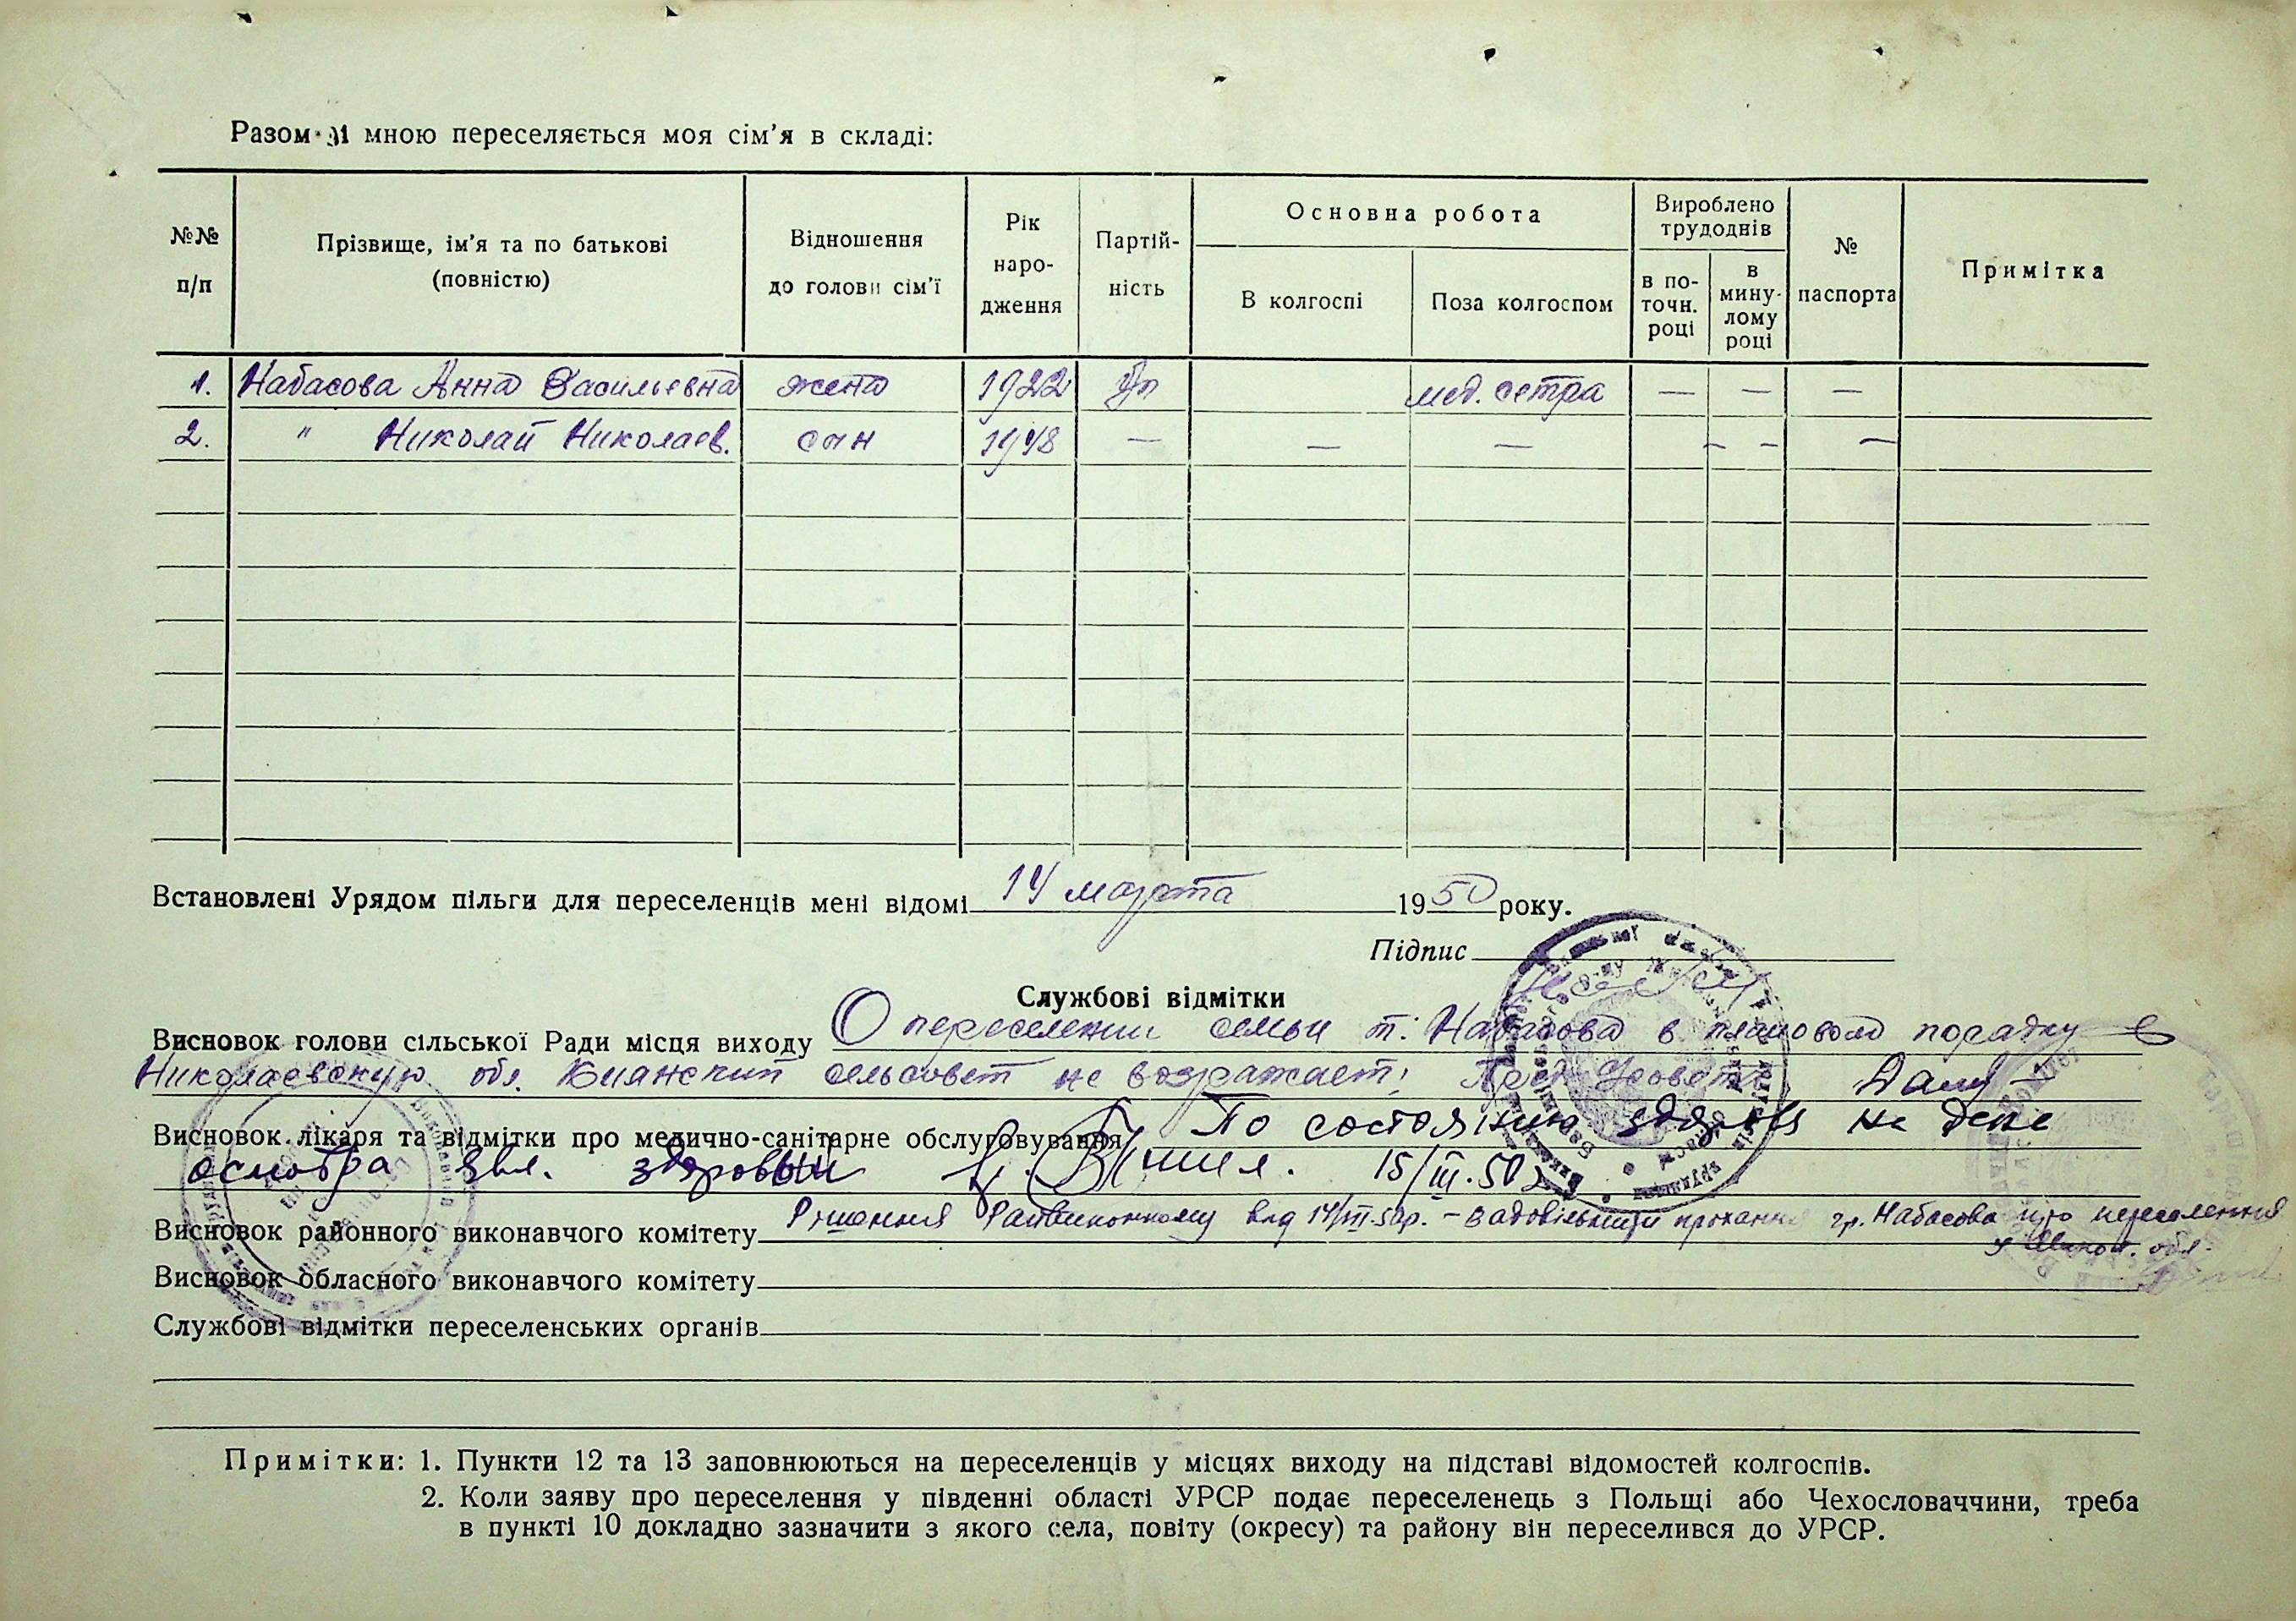 Разом зі мною переселяється моя сім’я в складі:
№№ п/п
Прізвище, ім’я та по батькові (повністю)
Відношення до голови сім’ї
Рік народження
Партійність
Основна робота
В колгоспі
Поза колгоспом
Вироблено трудоднів
в поточн. році
в минулому році
№ паспорта
Примітка
1. Набасова Анна Васильевна жена 1922 б/п мед. сестра — — —
2. " Николай Николаев. сын 1948 — — — — — —
Встановлені Урядом пільги для переселенців мені відомі 14 марта 1950 року.
Підпис
Службові відмітки
Висновок голови сільської Ради місця виходу О переселении семьи т. Набасова в плановом порядку в
Николаевскую обл. Киянский сельсовет не возражает;
Висновок лікаря та відмітки про медично-санітарне обслуговування По состоянию здоровья на день
осмотра явл. здоровый 15/III.50
Висновок районного виконавчого комітету Рішення Райвиконкому від 14/III-50р. – Задовільнити прохання гр. Набасова про переселення
у обл.
Висновок обласного виконавчого комітету
Службові відмітки переселенських органів
Примітки: 1. Пункти 12 та 13 заповнюються на переселенців у місцях виходу на підставі відомостей колгоспів.
2. Коли заяву про переселення у південні області УРСР подає переселенець з Польщі або Чехословаччини, треба
в пункті 10 докладно зазначити з якого села, повіту (окресу) та району він переселився до УРСР.